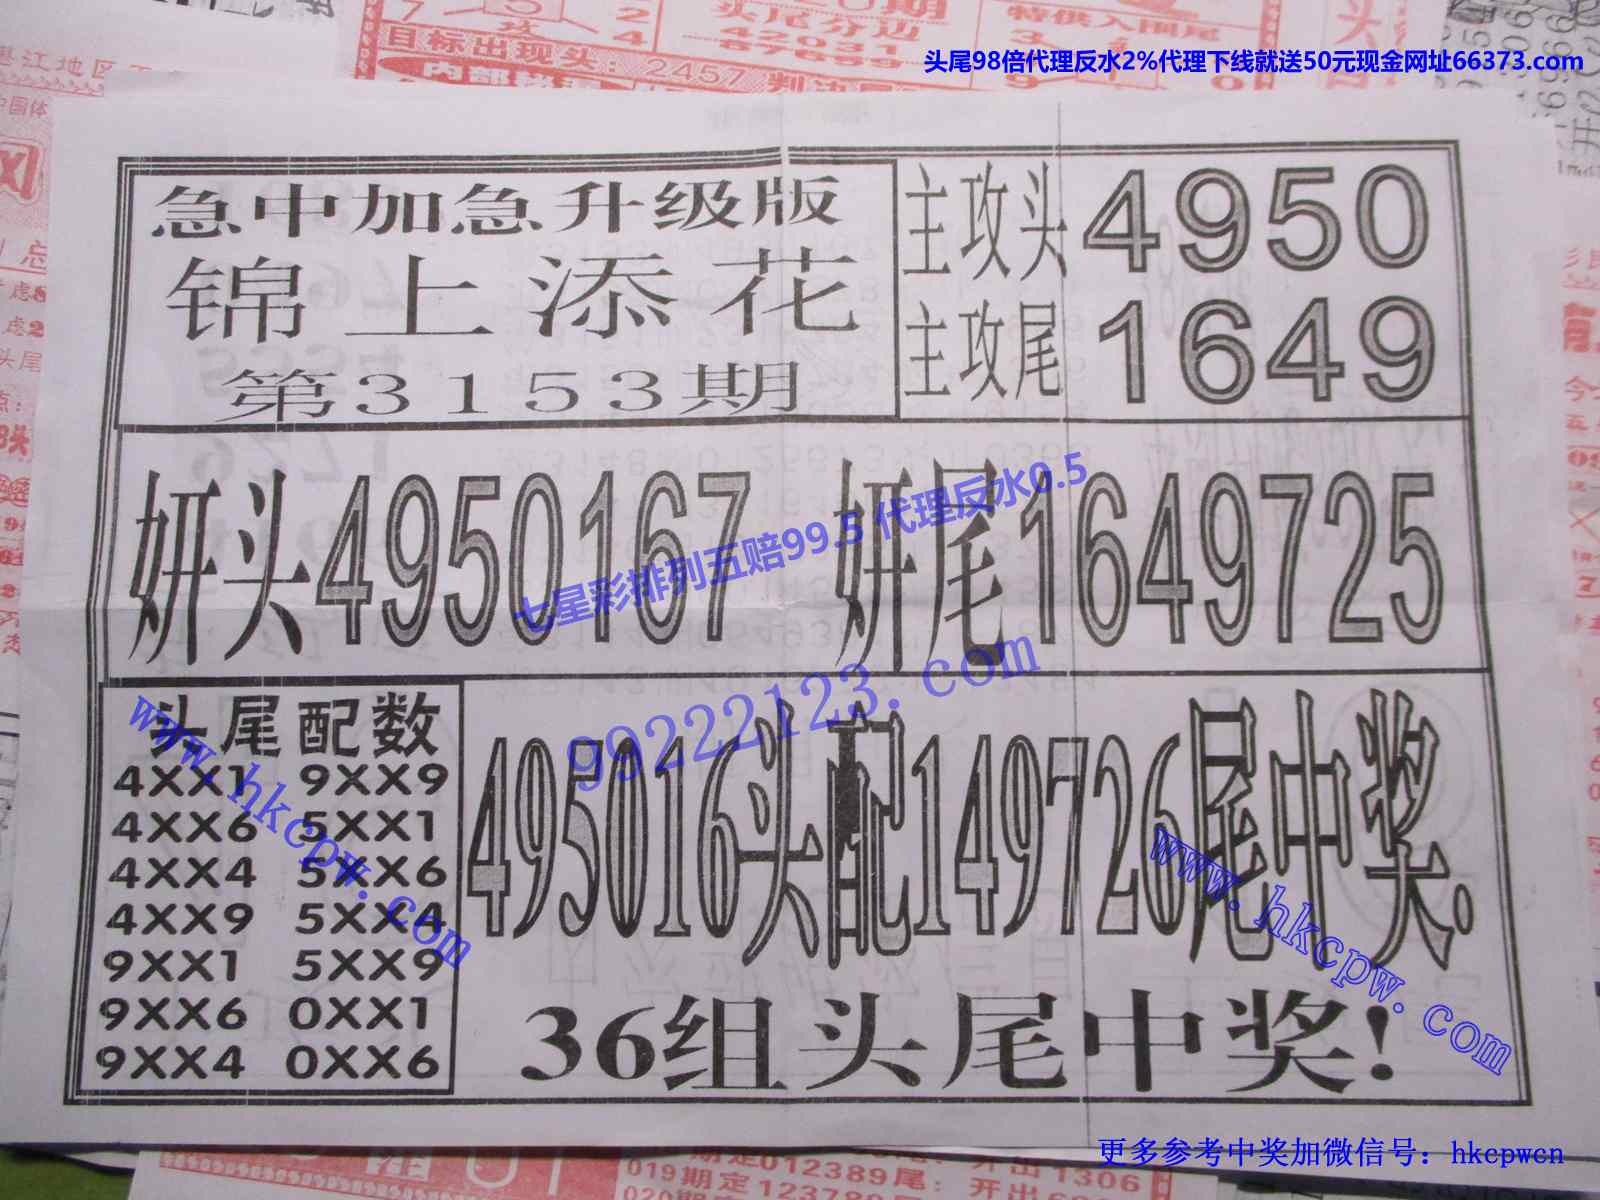 头尾98倍代理反水2%代理下线就送50元现金网址66373.com
头尾分边
特供入围尾
目标出现头:2457
急中加急升级版
锦上添花
第3153期
主攻头4950
主攻尾1649
妍头4950167 妍尾1649725
七星彩排列五赔99.5 代理反水0.5
99222123.com
头尾配数
4XX1 9XX9
4XX6 5XX1
4XX4 5XX6
4XX9 5XX4
9XX1 5XX9
9XX6 0XX1
9XX4 0XX6
www.hkcpw.com
495016头配149726尾中奖.
www.hkcpw.com
36组头尾中奖!
更多参考中奖加微信号：hkcpwcn
019期定012389尾：开出1306